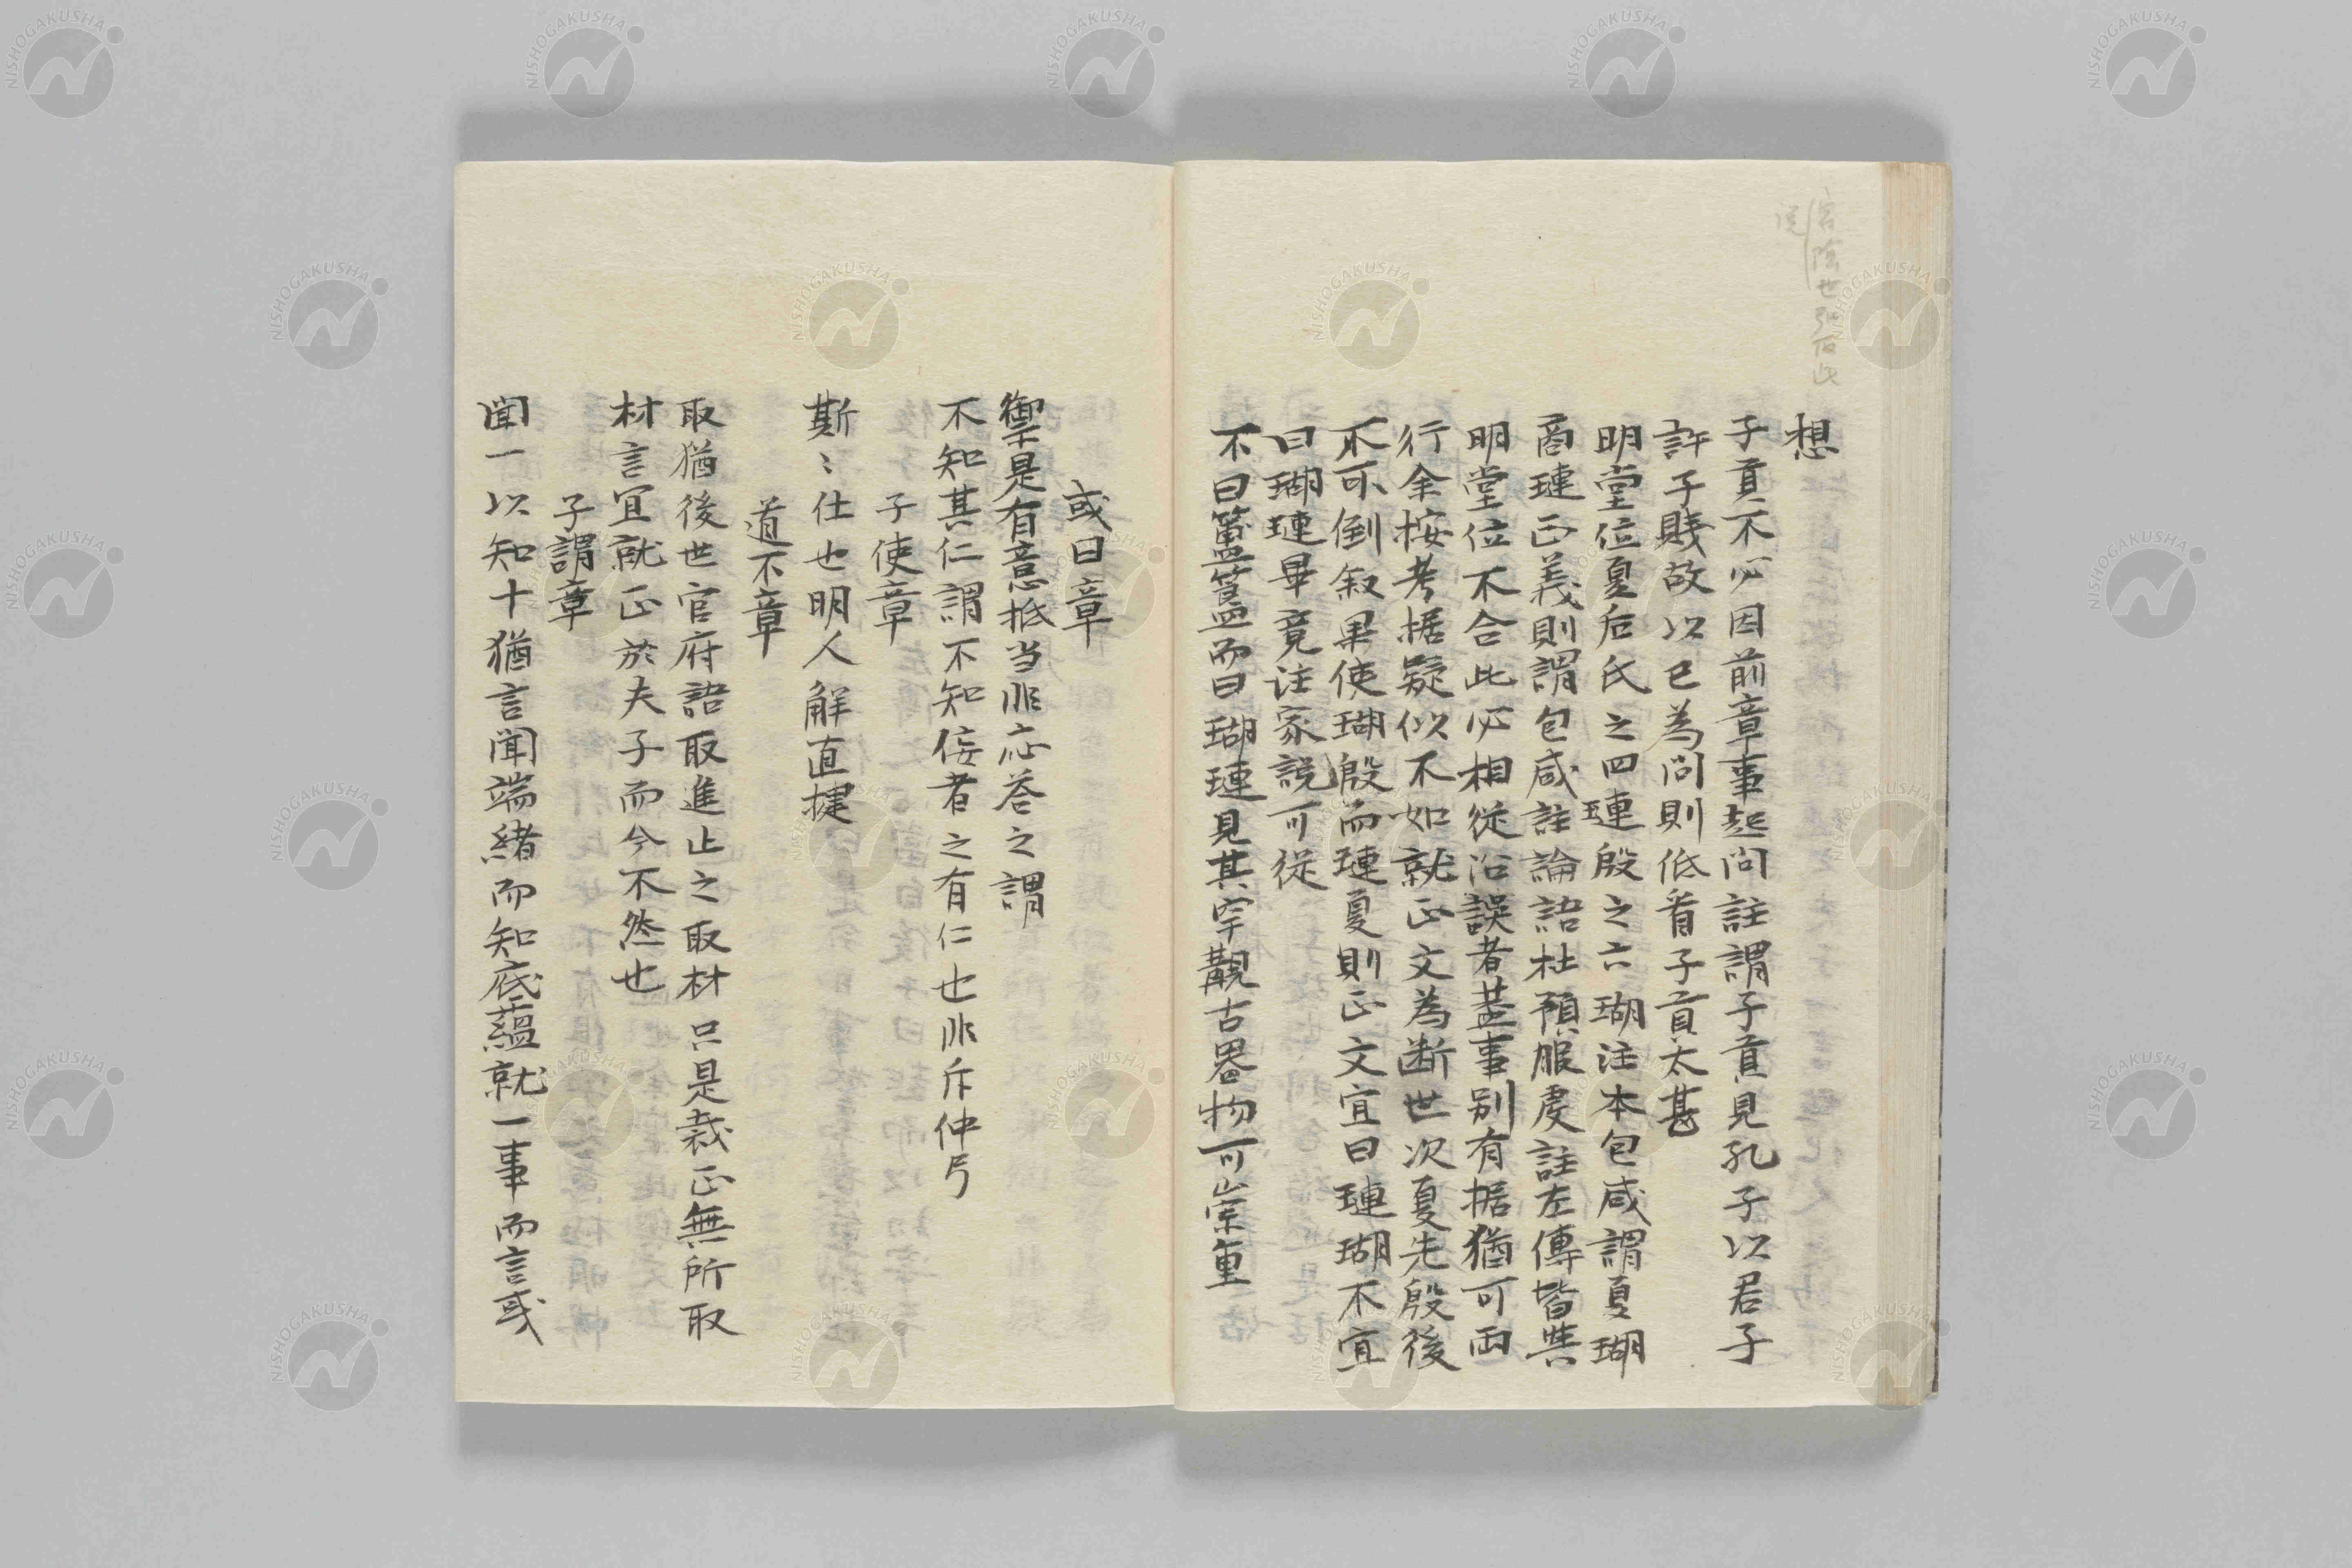 想
子貢不必因前章事起問註謂子貢見孔子以君子
許子賤故以己為問則低看子貢太甚
明堂位夏后氏之四璉殷之六瑚注本包咸謂夏瑚
商璉正義則謂包咸註論語杜預服虔註左傳皆與
明堂位不合此必相從沿誤者蓋事別有据猶可両
行余按考据疑似不如就正文為断世次夏先殷後
不可倒叙果使瑚殷而璉夏則正文宜曰璉瑚不宜
曰瑚璉畢竟注家説可從
不曰簠簋而曰瑚璉見其罕覯古器物可崇重
或曰章
禦是有意抵当非応答之謂
不知其仁謂不知佞者之有仁也非斥仲弓
子使章
斯〻仕也明人解直捷
道不章
取猶後世官府語取進止之取材只是裁正無所取
材言宜就正於夫子而今不然也
子謂章
聞一以知十猶言聞端緒而知底蘊就一事而言或
NISHOGAKUSHA